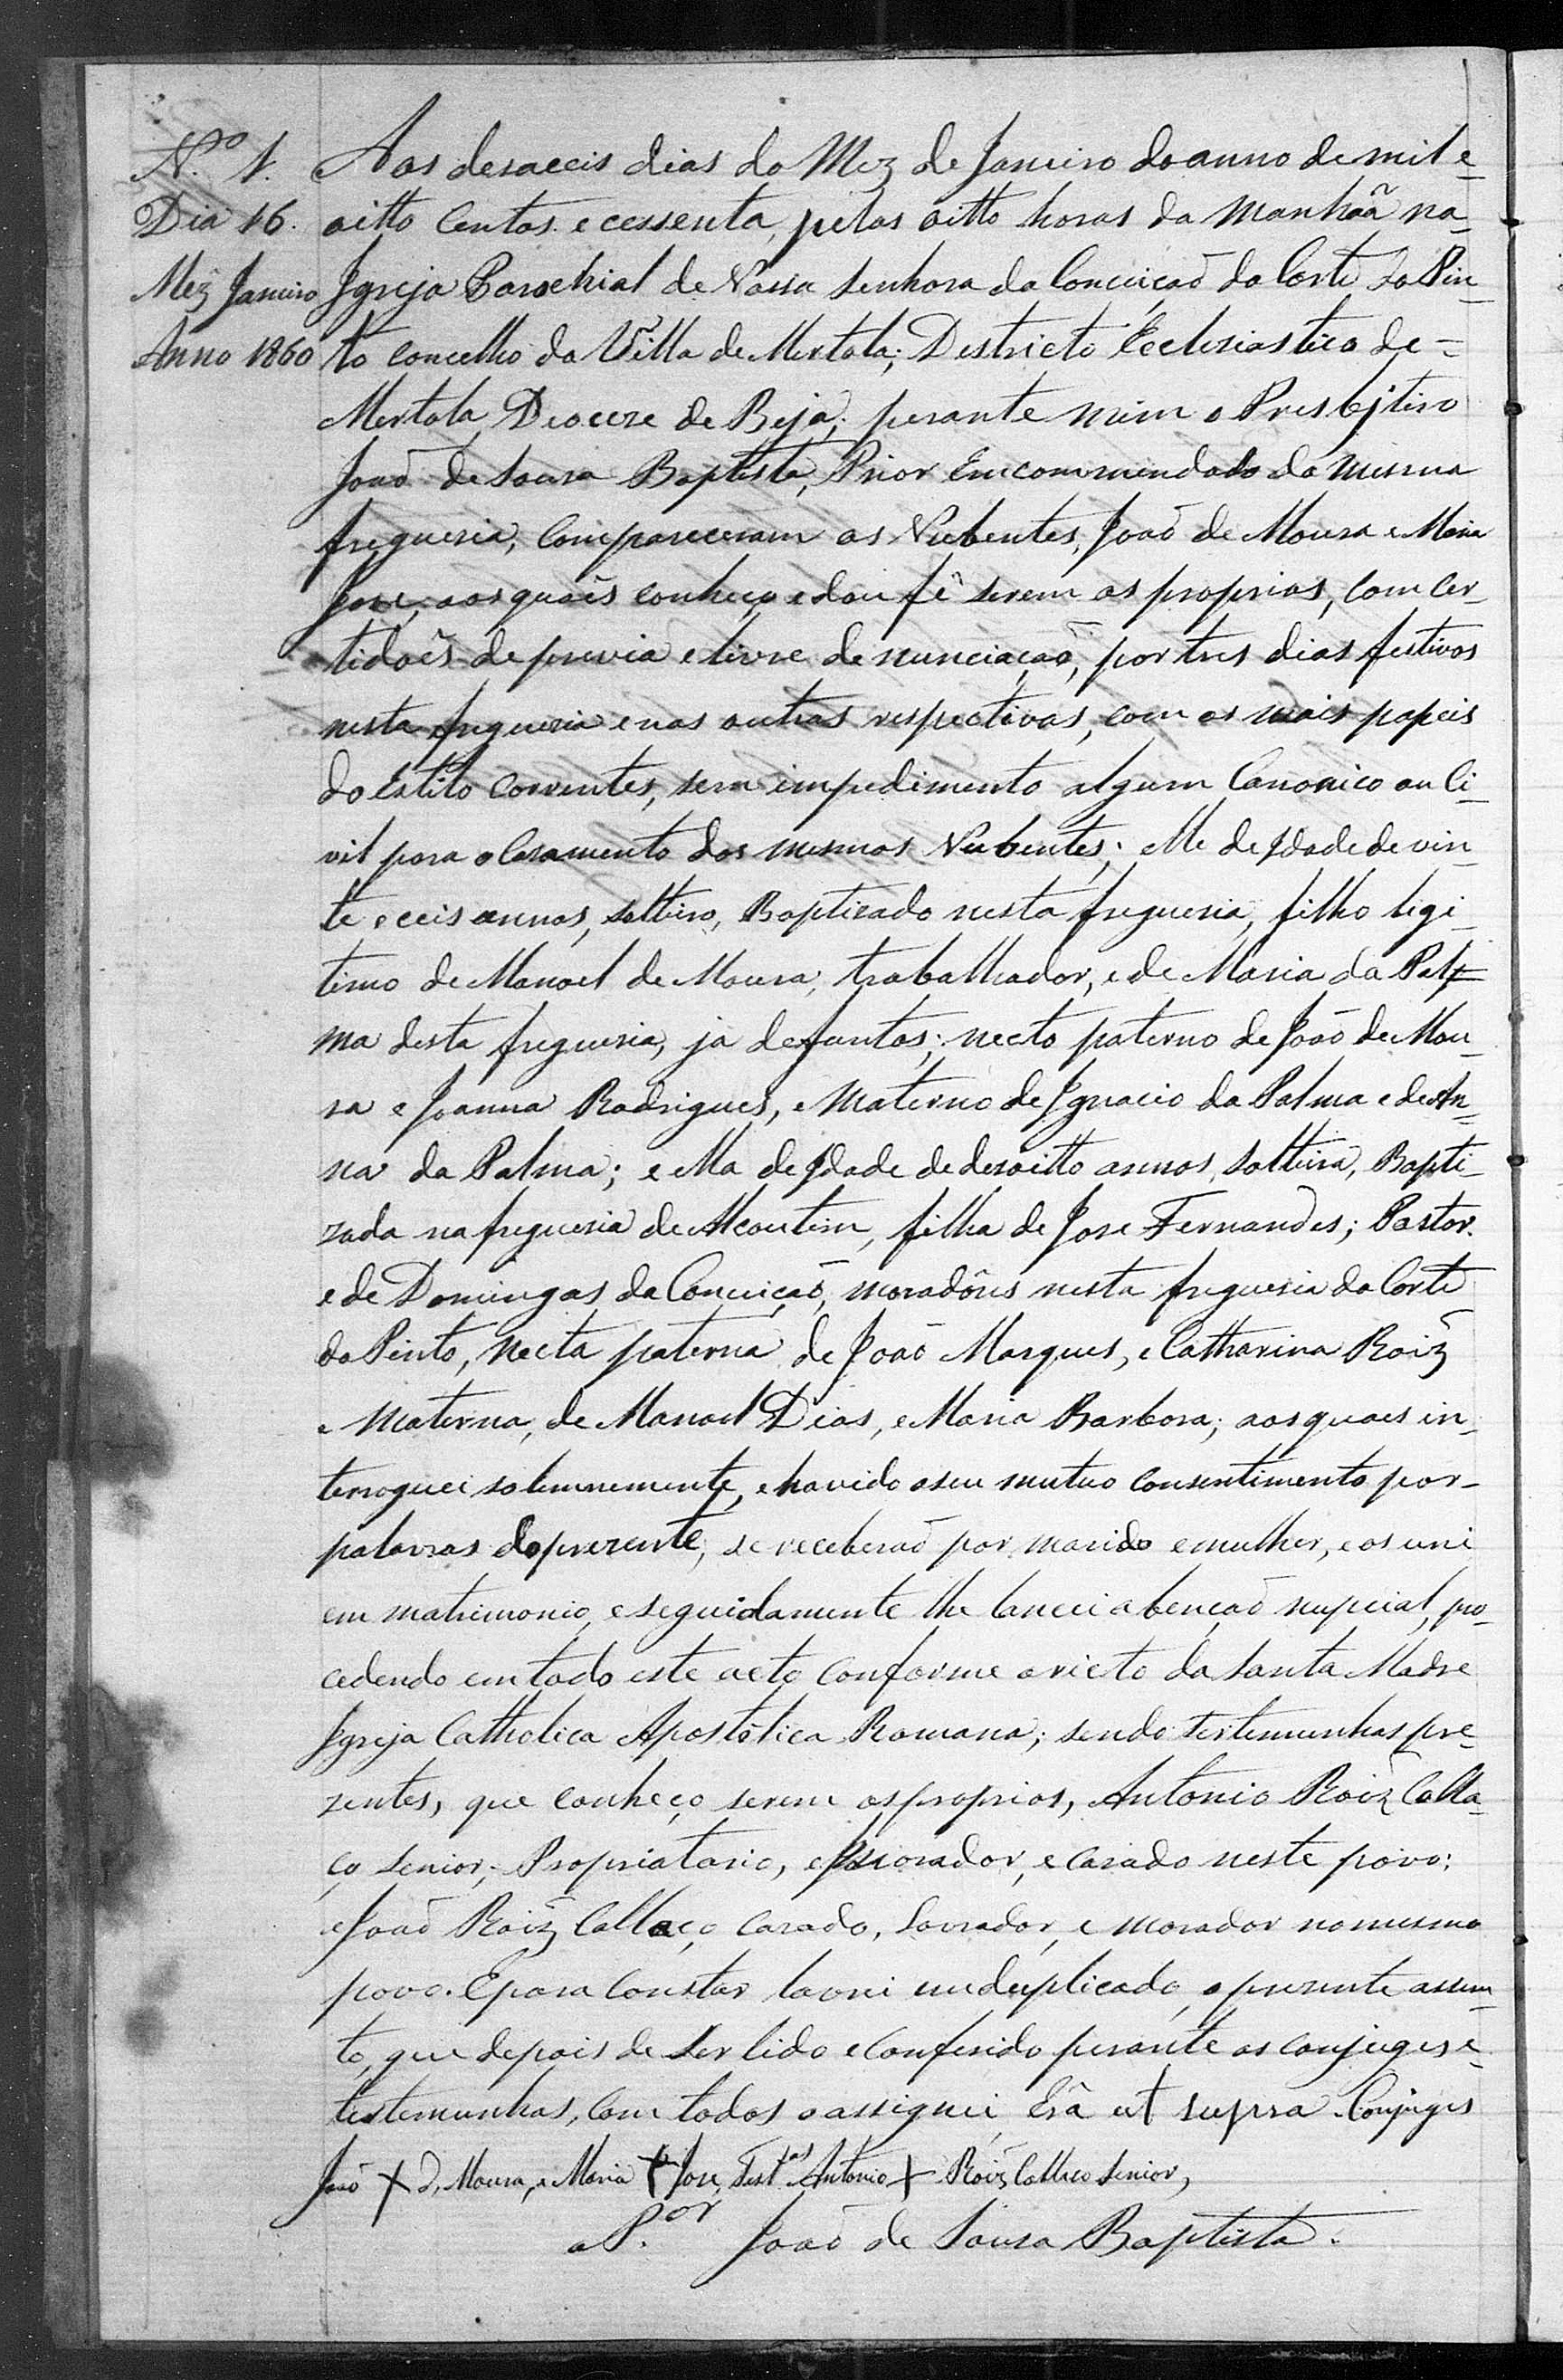 N.º 1.
Dia 16.
Mez Janeiro
Anno 1860
Aos desaceis dias do Mez de Janeiro do anno de mil e
oitto centos e cessenta, pelas oitto horas da manhãa na
Igreja Parochial de Nossa Senhora da Conceiçaõ da Corte do Pin-
to concelho da Villa de Mertola; Destricto Ecclesiastico de-
Mertola Dioceze de Beja; perante mim o Presbjtero
Joaõ de Sousa Baptista, Prior Emcommendado da mesma
freguesia, compareceram os Nubentes, Joaõ de Moura e Maria
Jose, aos quaês conheço e dou fê serem os proprios, com cer-
tidoês de previa e livre de nunciaçaõ, por tres dias festivos
nesta freguesia e nas outras respectivas, com os mais papeis
do estilo correntes, sem impedimento algum Canonico ou Ci-
vil para o Casamento dos mesmos Nubentes; elle de Idade de vin-
te e ceis annos, soltteiro, Baptisado nesta freguesia, filho legi-
timo de Manoel de Moura, trabalhador, e de Maria da Pal-
ma desta freguesia, ja defuntos; necto paterno de Joaõ de Mou-
ra e Joanna Rodrigues, e Materno de Ignacio da Palma e de An-
na da Palma; e ella de Idade de desoitto annos, soltteira, Bapti-
zada na freguesia de Alcoutim, filha de Jose Fernandes; Pastor.
e de Domingas da Conceiçaõ, moradôres nesta freguesia da Corte
do Pinto, necta paterna de Joaõ Marques, e Catharina Roiz
e Materna, de Manoel Dias, e Maria Barbosa; aos quaes in-
terroguei solemnemente, e havido o seu mutuo consentimento por-
palavras do prezente, se receberaõ por marido e mulher, e os uni
em matrimonio, e seguidamente lhe lancei a bençaõ nupcial, pro-
cedendo em todo este acto conforme o ricto da Santa Madre
Igreja Catholica Apostolica Romana; sendo testemunhas pre-
zentes, que conheço serem os proprios, Antonio Roiz Colla-
ço Senior, Propriatario, e morador, e casado neste povo;
e Joaõ Roiz Collaço, casado, Lavrador, e morador no mesmo
povo. E para constar lavrei em duplicado, o prezente assen-
to, que depois de ser lido e conferido perante os conjuges e-
testemunhas, com todos o assignei, Erâ ut supra. Conjuges
Joaõ + d, Moura, e Maria + Jose, Test.as Antonio + Roiz Collaco Senior,
o P.or Joaõ de Sousa Baptista.